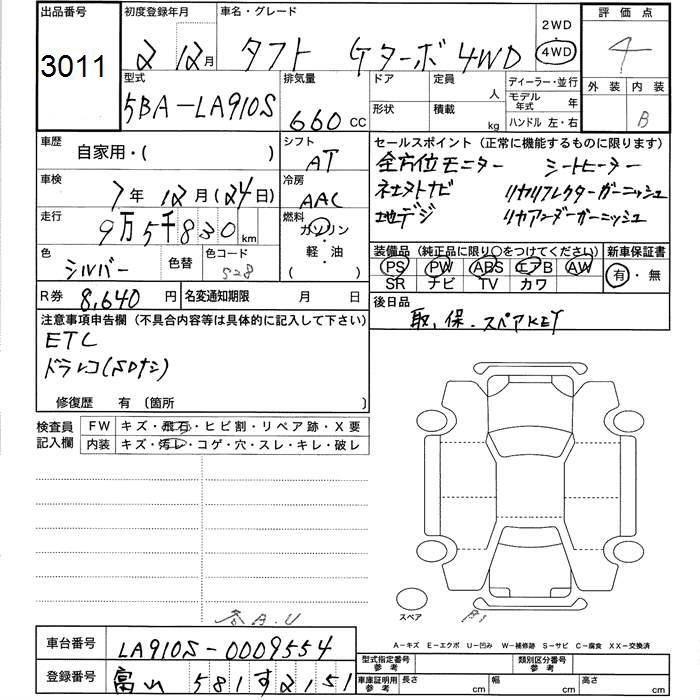 出品番号
3011
初度登録年月
2 12月
車名・グレード
タフト Gターボ 4WD
2WD
4WD
評価点
4
外装 内装
B
型式
5BA-LA910S
排気量
660 cc
ドア
形状
定員
人
積載
kg
ディーラー・並行
モデル年式 年
ハンドル 左・右
車歴
自家用・( )
シフト
AT
車検
7年12月(24日)
冷房
AAC
走行
9万5千830km
燃料
ガソリン
・
軽・油
( )
色
シルバー
色替
色コード
S28
R券 8,640円
名変通知期限 月 日
セールスポイント(正常に機能するものに限ります)
全方位モニター シートヒーター
コネクトナビ リヤリフレクターガーニッシュ
地デジ リヤアンダーガーニッシュ
装備品(純正品に限り○をつけてください)
PS PW ABS エアB AW
SR ナビ TV カワ
新車保証書
有・無
後日品
取、保・スペアKEY
注意事項申告欄(不具合内容等は具体的に記入して下さい)
ETC
ドラレコ(SDナシ)
修復歴 有〔箇所 〕
検査員記入欄
FW キズ・飛石・ヒビ割・リペア跡・X要
内装 キズ・汚レ・コゲ・穴・スレ・キレ・破レ
A.U
スペア
A-キズ E-エクボ U-凹み W-補修跡 S-サビ C-腐食 XX-交換済
車台番号
LA910S-0009554
登録番号
富山 581 す 2151
型式指定番号参考
類別区分番号参考
車庫証明用参考
長さ cm
幅 cm
高さ cm